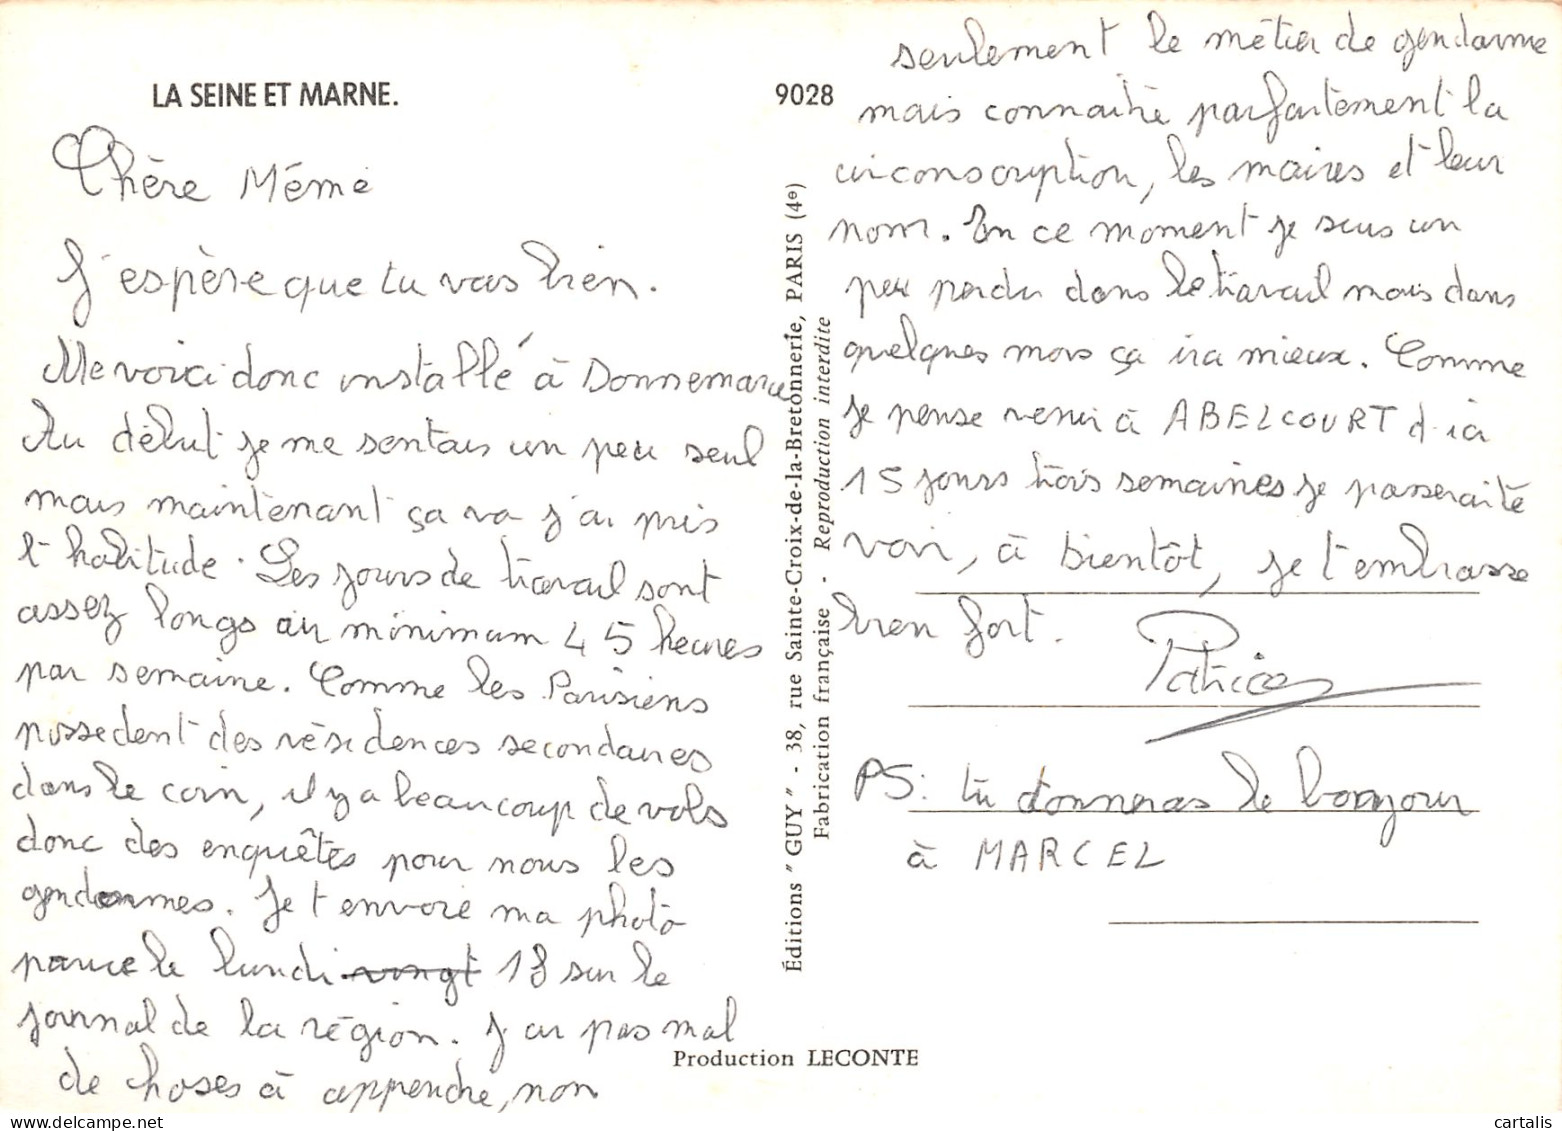 LA SEINE ET MARNE.
9028
Chère Mémé
J'espère que tu vas bien.
Me voici donc installé à Donnemarie
Au début je me sentais un peu seul
mais maintenant ça va j'ai pris
l'habitude. Les jours de travail sont
assez longs au minimum 45 heures
par semaine. Comme les Parisiens
possedent des résidences secondaires
dans le coin, il y a beaucoup de vols
donc des enquêtes pour nous les
gendarmes. Je t'envoie ma photo
parue le lundi vingt 18 sur le
journal de la région. J'ai pas mal
de choses à apprendre, non
seulement le métier de gendarme
mais connaitre parfaitement la
circonscription, les maires et leur
nom. En ce moment je suis un
peu perdu dans le travail mais dans
quelques mois ça ira mieux. Comme
je pense venir à ABELCOURT d'ici
15 jours trois semaines je passerai te
voir, à bientôt, je t'embrasse
bien fort.
Patrice
PS: tu donneras le bonjour
à MARCEL
Éditions "GUY" - 38, rue Sainte-Croix-de-la-Bretonnerie, PARIS (4e)
Fabrication française - Reproduction interdite
Production LECONTE
www.delcampe.net
cartalis